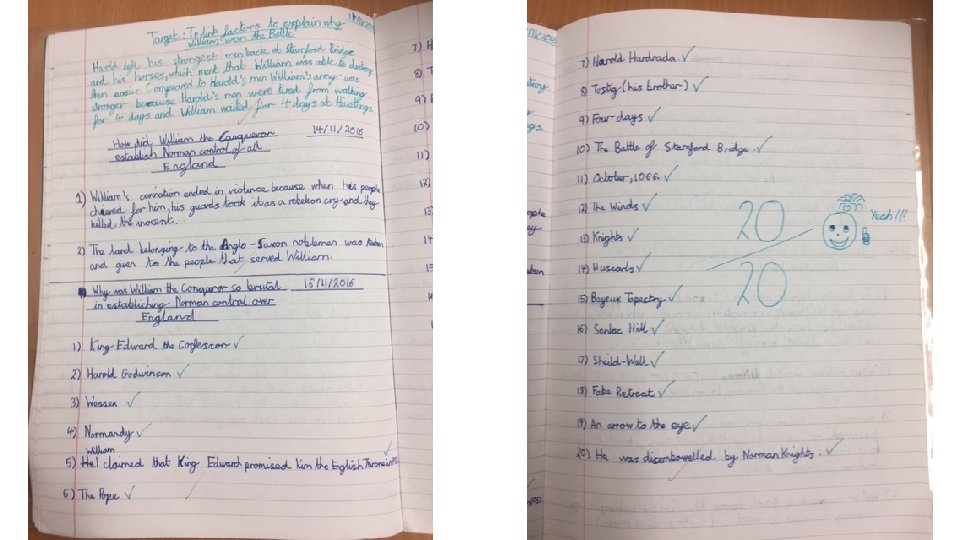 Target: To link factors to explain why
William won the Battle.
Harold left his strongest men back at Stamford Bridge
and his horses, which ment that William was able to destroy
them easier. Compared to Harold's men William's army was
stronger because Harold's men were tired from walking
for 4 days and William waited for 4 days at Hastings.
How did William the Conqueror 14/11/2016
establish Norman control of all
England
1) William's corination ended in violence because when his people
cheered for him, his guards took it as a rebelion cry and they
killed the inocent.
2) The land belonging to the Anglo-Saxon nobleman was taken
and given to the people that served William.
Why was William the Conqueror so brutal 15/11/2016
in establiching Norman control over
England
1) King Edward the Confessor ✓
2) Harold Godwinson ✓
3) Wessex ✓
4) Normandy ✓
William
5) He claimed that King Edward promised him the English Throne
6) The Pope ✓
7) H
8) T
9)
10)
11)
12)
13)
14
15
7) Harold Hardrada ✓
8) Tostig (his brother) ✓
9) Four days ✓
10) The Battle of Stamford Bridge. ✓
11) October, 1066. ✓
12) The Winds ✓
13) Knights ✓
14) Huscarls ✓
15) Bayeux Tapestry ✓
16) Senlac Hill ✓
17) Sheild-Wall ✓
18) False Retreat ✓
19) An arrow to the eye ✓
20) He was disembowelled by Norman Knights. ✓
20
20
Yeah!!!